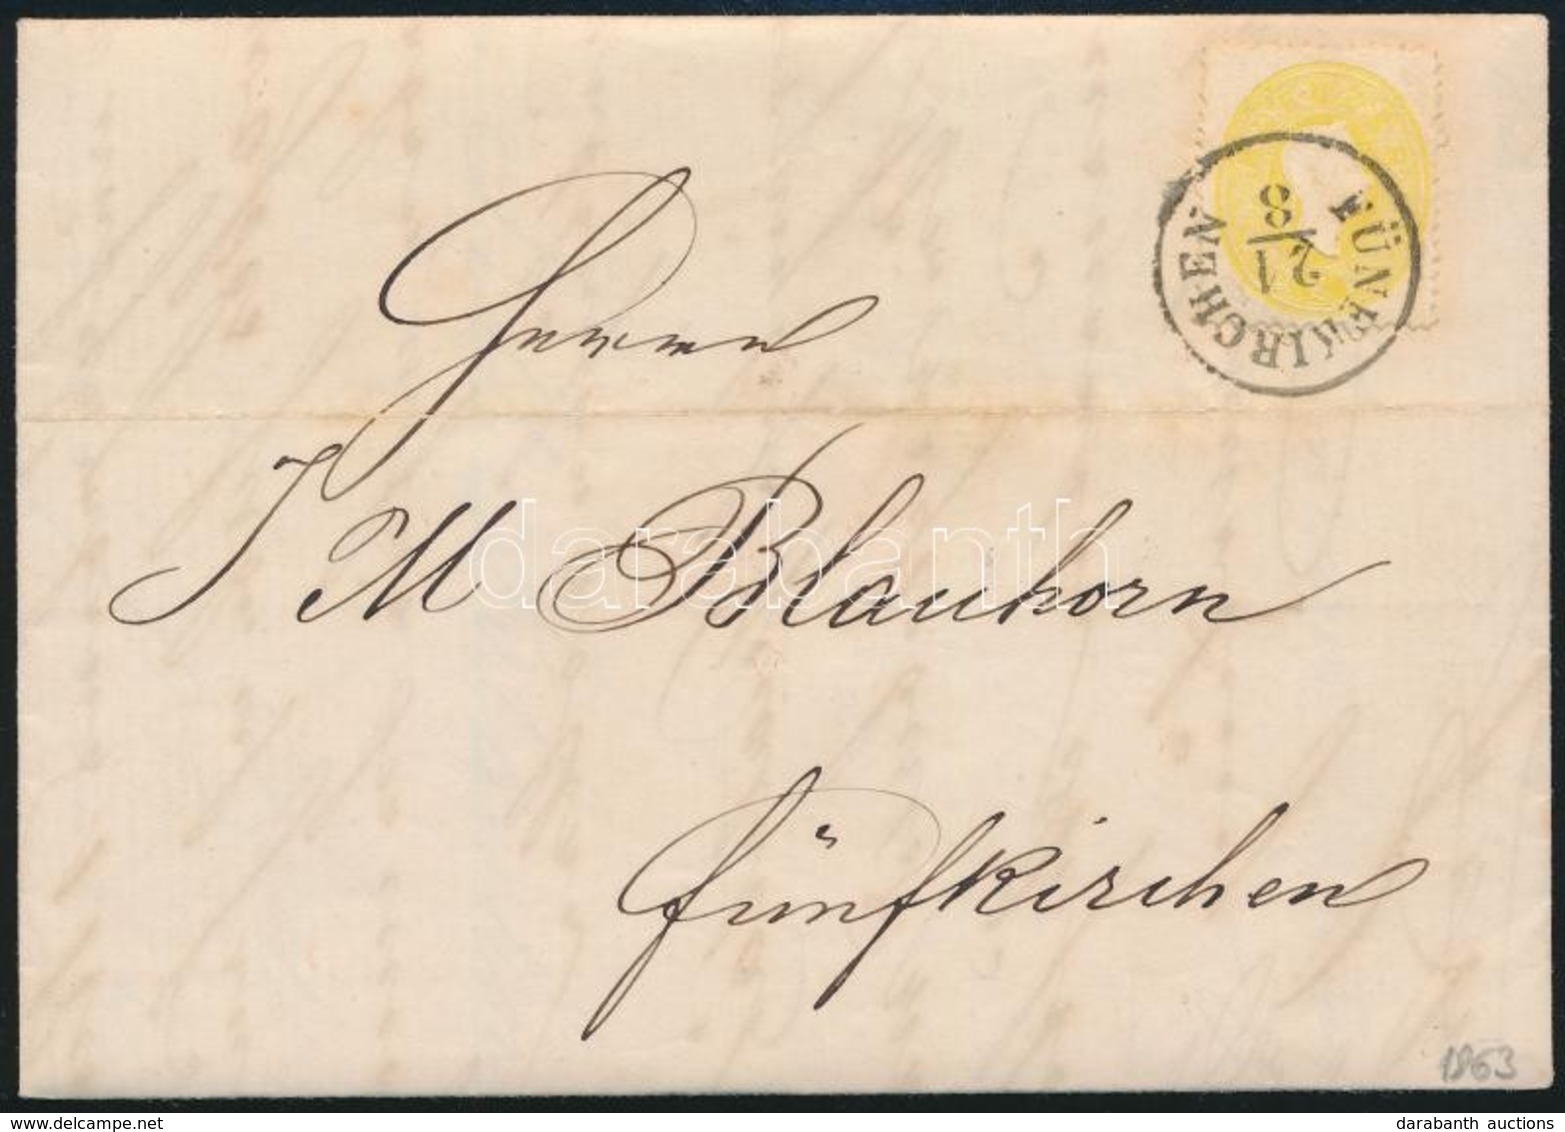 FÜNFKIRCHEN
21/8
Herrn
J M Blauhorn
darabanth
Fünfkirchen
1863
delcampe.net
darabanth auctions